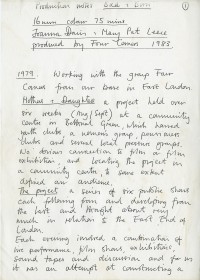 Production notes
16mm colour 75 mins.
Joanna Davis & Mary Pat Leece
produced by Four Corners 1983.
1979. Working with the group Four
Corners from our base in East London.
Mothers & Daughters a project held over
six weeks (Aug/Sept) at a community
centre in Bethnal Green which housed
youth clubs a women's group, pensioners
clubs and several local pressure groups.
We obvious connection to film or film
exhibition, and locating the project in
a community centre, to some extent
defined an audience.
The project a series of six public shows
each following from and developing from
the last and thought about very
much in relation to the East End of
London.
Each evening involved a combination of
live performance, film shows, exhibition,
sound tapes and discussion and for us
it was an attempt at constructing a